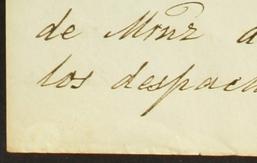 de Mrnz a
los despach